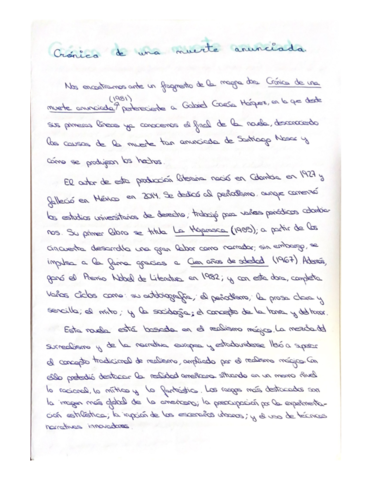 Crónica de una muerte anunciada
Nos encontramos ante un fragmento de la magna obra Crónica de una
(1981)
muerte anunciada, perteneciente a Gabriel García Márquez, en la que desde
sus primeras líneas ya conocemos el final de la novela, desconociendo
las causas de la muerte tan anunciada de Santiago Nasar y
cómo se produjeron los hechos.
El autor de esta producción literaria nació en Colombia en 1927 y
falleció en México en 2014. Se dedicó al periodismo, aunque comenzó
los estudios universitarios de derecho, trabajó para varios periódicos colombia-
nos. Su primer libro se titula La Hojarasca (1955); a partir de los
cincuenta desarrolla una gran labor como narrador; sin embargo, se
impulsa a la fama gracias a Cien años de soledad (1967). Además,
ganó el Premio Nobel de Literatura en 1982, y con esta obra, completa
varios ciclos como su autobiografía, el periodismo, la prosa clara y
sencilla, el mito; y la sociología; el concepto de la honra, y del honor.
Esta novela está basada en el realismo mágico. La mezcla del
surrealismo y de la narrativa europea y estadounidense llevó a superar
el concepto tradicional de realismo, ampliado por el realismo mágico. Con
ello pretendió destacar la realidad americana situando en un mismo nivel
lo racional, lo mítico y lo fantástico. Los rasgos más destacados son
la imagen más global de lo americano; la preocupación por la experimenta-
ción estilística, la irrupción de los escenarios urbanos; y el uso de técnicas
narrativas innovadoras.